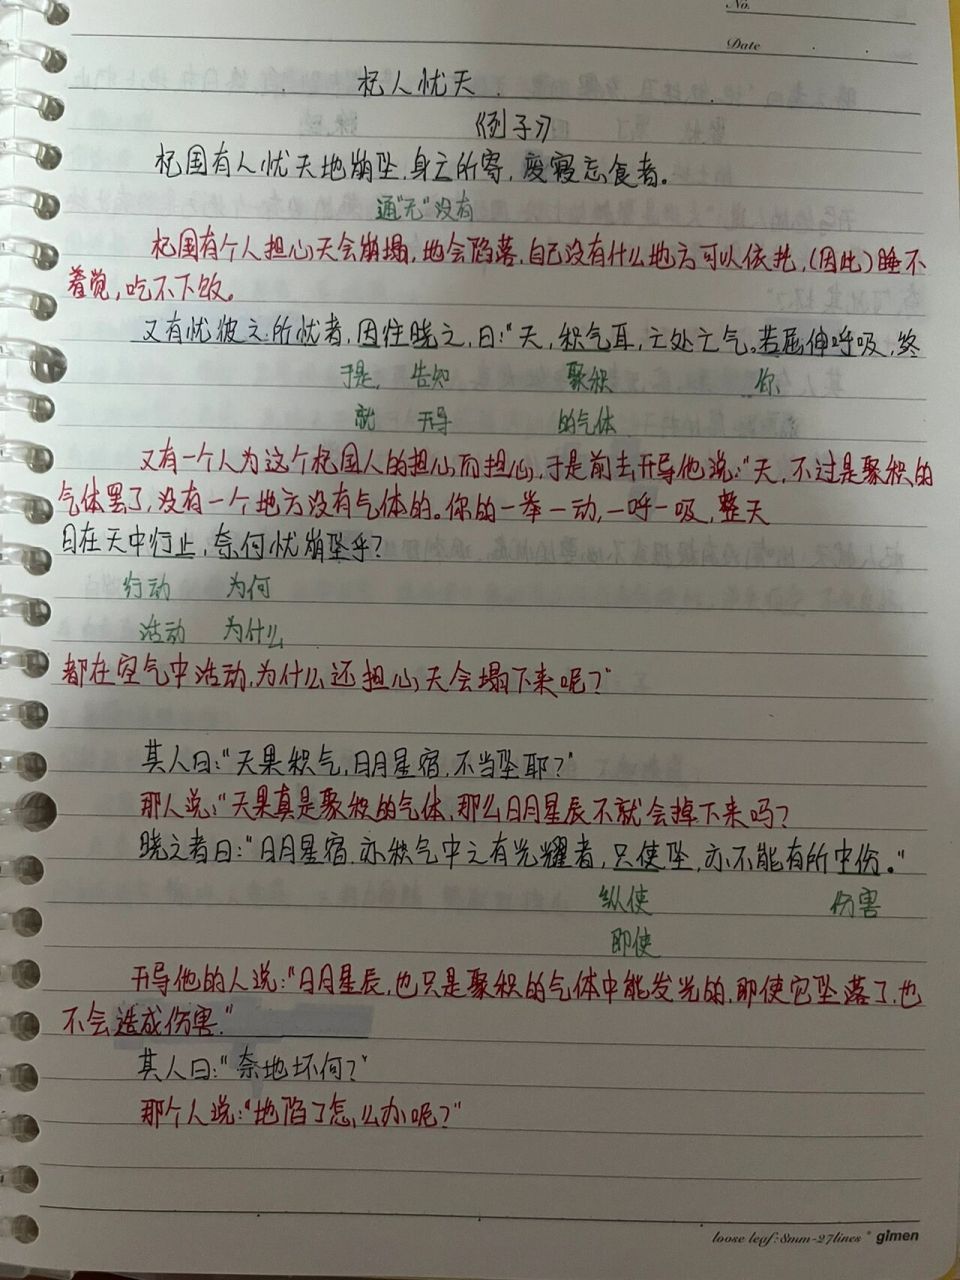 No.
Date
杞人忧天
《列子》
杞国有人忧天地崩坠,身亡所寄,废寝忘食者。
通"无"没有
杞国有个人担心天会崩塌,地会陷落,自己没有什么地方可以依托,(因此)睡不
着觉,吃不下饭。
又有忧彼之所忧者,因往晓之,曰:"天,积气耳,亡处亡气。若屈伸呼吸,终
于是, 告知 聚积 你
就 开导 的气体
又有一个人为这个杞国人的担心而担心,于是前去开导他,说:"天,不过是聚积的
气体罢了,没有一个地方没有气体的。你的一举一动,一呼一吸,整天
日在天中行止,奈何忧崩坠乎?
行动 为何
活动 为什么
都在空气中活动,为什么还担心天会塌下来呢?"
其人曰:"天果积气,日月星宿,不当坠耶?"
那人说:"天果真是聚积的气体,那么日月星辰不就会掉下来吗?
晓之者曰:"日月星宿,亦积气中之有光耀者,只使坠,亦不能有所中伤。"
纵使 伤害
即使
开导他的人说:"日月星辰,也只是聚积的气体中能发光的,即使它坠落了,也
不会造成伤害."
其人曰:"奈地坏何?"
那个人说:"地陷了怎么办呢?"
loose leaf:8mm-27lines * gimen